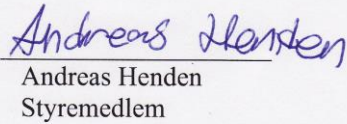 Andreas Henden
Andreas Henden
Styremedlem